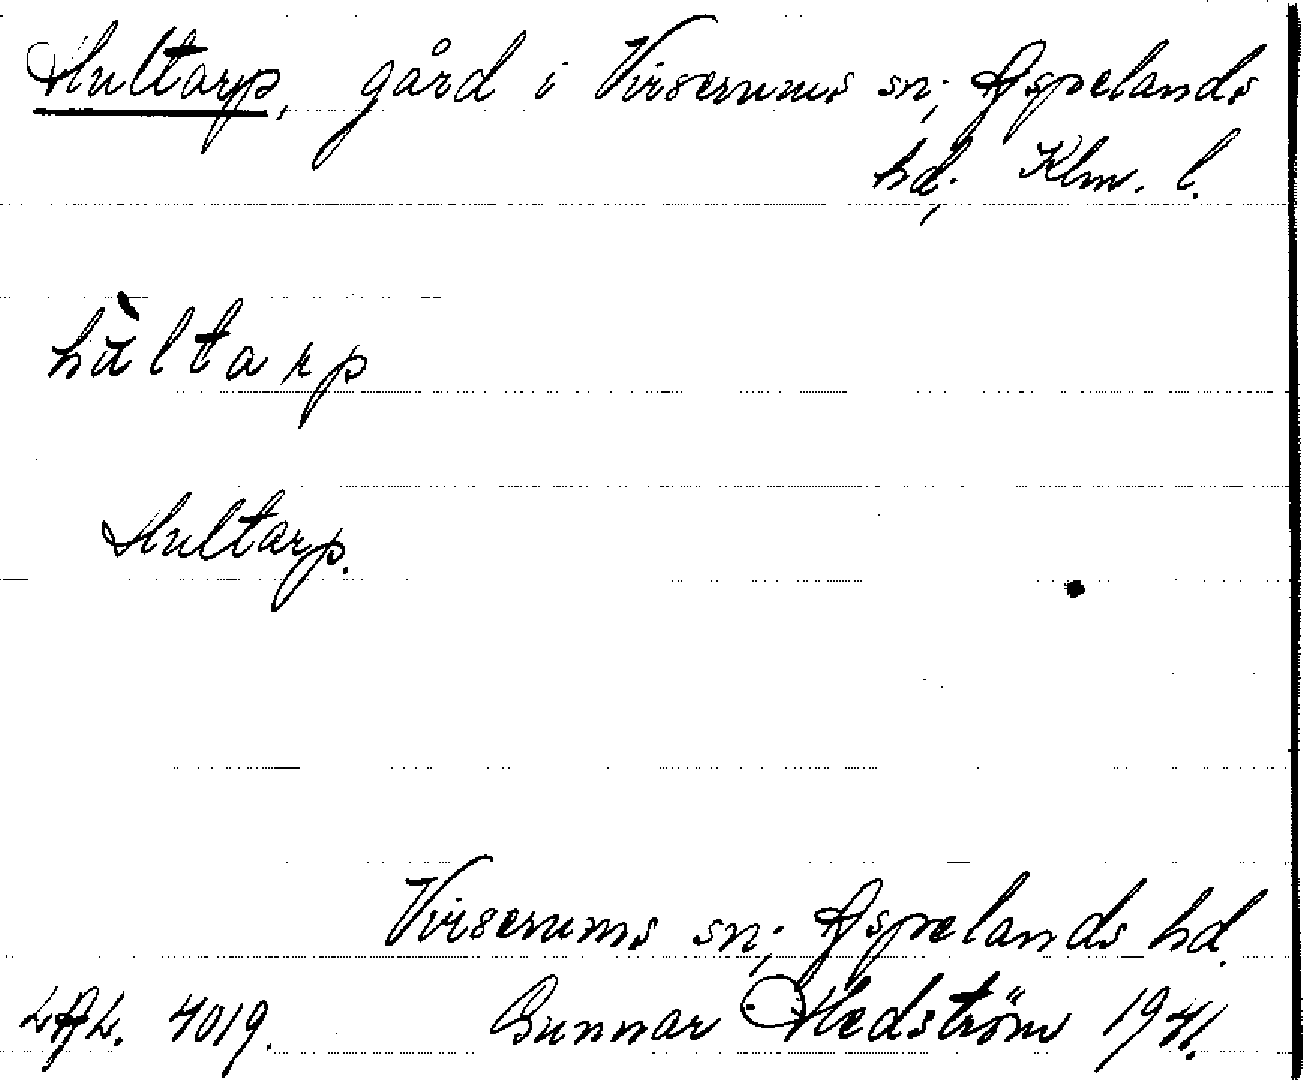 Hultarp, gård i Virserums sn; Aspelands
hd; Klm. l.
hùltarp
Hultarp.
Virserums sn; Aspelands hd.
LAL. 4019. Gunnar Hedström 1941.